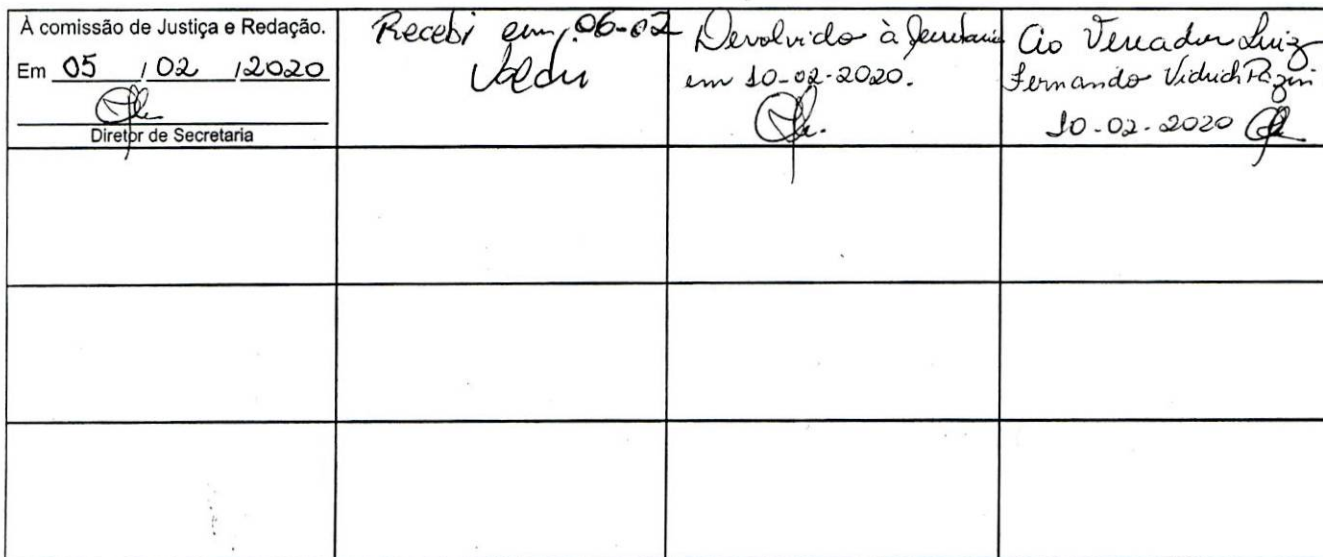 À comissão de Justiça e Redação.
Em 05 / 02 / 2020
Diretor de Secretaria
Recebi em, 06-02
Devolvido à Secretaria
em 10-02-2020.
Ao Vereador Luiz
Fernando Vidrich
10-02-2020